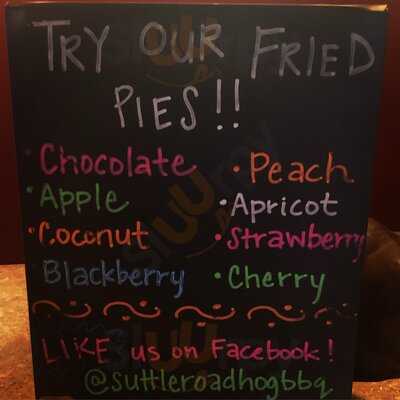 TRY OUR FRIED
PIES!!
• Chocolate
• Apple
• Coconut
Blackberry
• Peach
• Apricot
• Strawberry
• Cherry
LIKE us on Facebook!
@suttleroadhogbbq